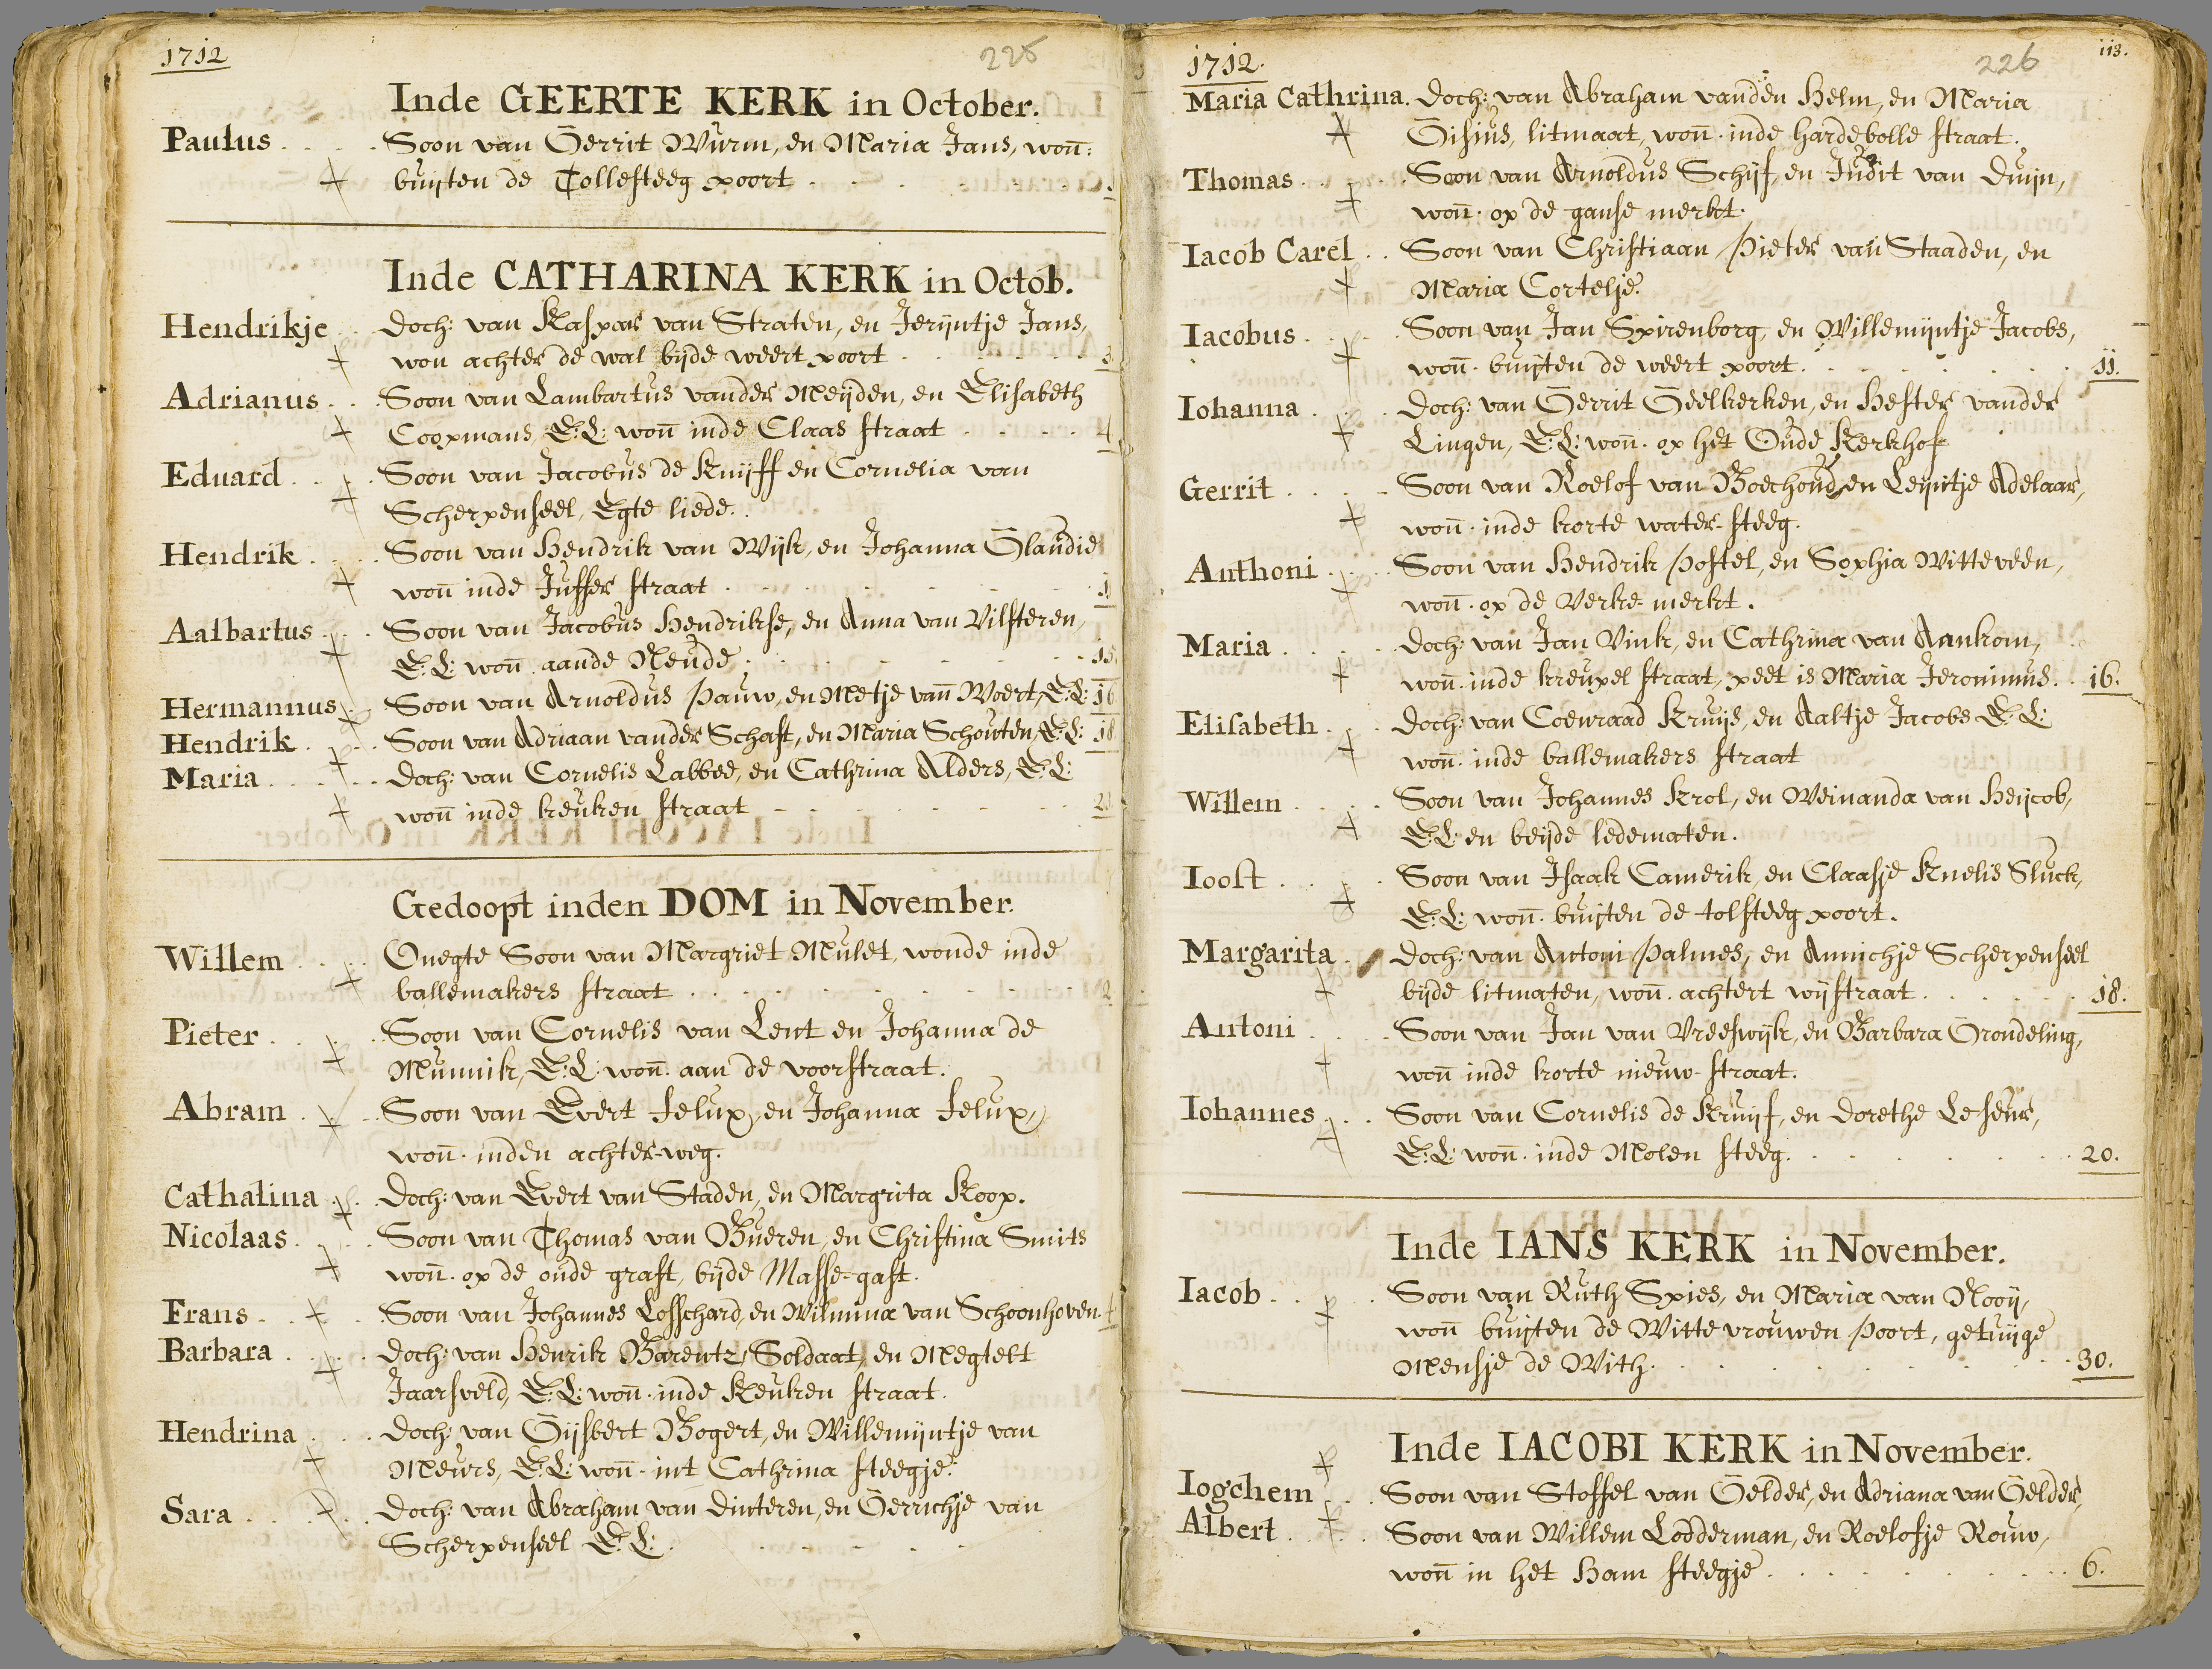 1712
225
Inde GEERTE KERK in October.
Paulus . . . . Soon van Gerrit Wurm, en Maria Jans, won:
buijten de Tollesteeg poort
Inde CATHARINA KERK in Octob.
Hendrikje . . doch: van Kaspar van Straten, en Jerijntje Jans,
won achter de wal bijde weert poort . . . . 3
Adrianus . . . Soon van Lambartus vander Meijden, en Elisabeth
Coopmans, E:L: won inde Claas straat . . . . 4
Eduard . . . Soon van Jacobus de Kuijff en Cornelia van
Scherpenseel, Egte liede.
Hendrik . . . Soon van Hendrik van Wijk, en Johanna Glaudie
won inde Juffer straat
Aalbartus . . . Soon van Jacobus Hendrikse, en Anna van Vilsteren,
E:L: won aande Neude . . . . 15.
Hermannus . Soon van Arnoldus Pauw, en Metje van Woert, E:L: 16
Hendrik . . . Soon van Adriaan vander Schaft, en Maria Schouten, E:L: 18
Maria . . . . doch: van Cornelis Labbee, en Cathrina Alders, E:L:
won inde keuken straat
Gedoopt inden DOM in November.
Willem . . . Onegte Soon van Margriet Mulet, wonde inde
ballemakers straat . . . . 2
Pieter . . . Soon van Cornelis van Lent en Johanna de
Munnik, E:L: won. aan de voorstraat.
Abram . . . Soon van Evert Jelup, en Johanna Jelup,
won. inden achter-weg.
Cathalina . . doch: van Evert van Staden, en Margrita Koop.
Nicolaas . . . Soon van Thomas van Bueren, en Christina Smits
won. op de oude graft, bijde Masse-gast.
Frans . . . Soon van Johannes Losschard, en Wilmina van Schoonhoven. 4
Barbara . . . doch: van Henrik Barentz, Soldaat, en Megtelt
Jaarsveld, E:L: won. inde Keuken straat.
Hendrina . . . doch: van Gijsbert Bogert, en Willemijntje van
Meurs, E:L: won. int Cathrina steegje.
Sara . . . . doch: van Abraham van dinteren, en Gerrichje van
Scherpenseel E:L:
1712.
226
113.
Maria Cathrina. doch: van Abraham vanden Helm, en Maria
Gisius, litmaat, won. inde hardebolle straat.
Thomas . . . Soon van Arnoldus Schijf, en Judit van duijn,
won. op de ganse merkt.
Iacob Carel . . Soon van Christiaan Pieter van Staaden, en
Maria Cortelje.
Iacobus . . . Soon van Jan Spirenborg, en Willemijntje Jacobs,
won. buijten de weert poort. . . . . 11.
Iohanna . . . doch: van Gerrit Geelkerken, en Hester vander
Lingen, E:L: won. op het Oude Kerkhof
Gerrit . . . . Soon van Roelof van Bochoud, en Leijntje Adelaar,
won. inde korte water-steeg.
Anthoni . . . Soon van Hendrik Postel, en Sophia Witteveen,
won. op de Verke-merkt.
Maria . . . . doch: van Jan Vink, en Cathrina van Ankom,
won. inde kreupel straat, peet is Maria Jeronimus. 16.
Elisabeth . . doch: van Coenraad Kruijs, en Aaltje Jacobs E:L:
won. inde ballemakers straat
Willem . . . . Soon van Johannes Krol, en Weinanda van Heijcob,
E:L: en beijde ledematen.
Ioost . . . . Soon van Isaak Camerik, en Claasje Knelis Sluck,
E:L: won. buijten de tolsteeg poort.
Margarita . doch: van Antoni Palmes, en Annichje Scherpenseel
bijde litmaten, won. achtert wijstraat . . . . 18.
Antoni . . . Soon van Jan van Vreeswijk, en Barbara Grondeling,
won inde korte nieuw-straat.
Iohannes . . . Soon van Cornelis de Kruijf, en dorethe Leseur,
E:L: won. inde Molen steeg. . . . . 20.
Inde IANS KERK in November.
Iacob . . . . Soon van Ruth Spies, en Maria van Nooij,
won buijten de Witte vrouwen Poort, getuijge
Mensje de With. . . . . 30.
Inde IACOBI KERK in November.
Iogchem . . . Soon van Stoffel van Gelder, en Adriana van Gelder,
Albert . . . . Soon van Willem Lodderman, en Roelofje Rouw,
won in het Ham steegje . . . . 6.